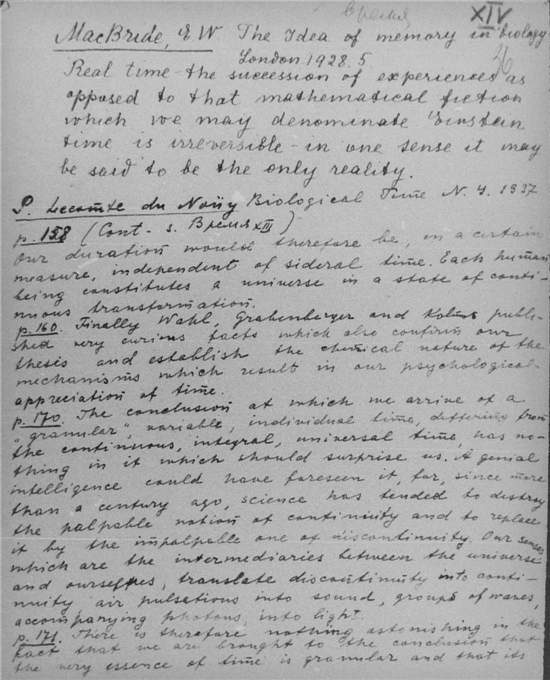 Время XIV
MacBride, E W. The Idea of memory in biology
London 1928. 5. 36
Real time - the succession of experiences as
opposed to that mathematical fiction
which we may denominate Einstein
time is irreversible - in one sense it may
be said to be the only reality.
P. Lecomte du Noüy Biological Time N. Y. 1937
p. 158 (Cont. s. Время XIII)
Our duration would therefore be, in a certain
measure, independent of sideral time. Each human
being constitutes a universe in a state of conti-
nuous transformation.
p. 160. Finally Wahl, Grabenberger and Kalmus publi-
shed very curious facts which also confirm our
thesis and establish the chemical nature of the
mechanisms which result in our psychological
appreciation of time.
p. 170. The conclusion at which we arrive of a
"granular", variable, individual time, differing from
the continuous, integral, universal time, has no-
thing in it which should surprise us. A genial
intelligence could have foreseen it, for, since more
than a century ago, science has tended to destroy
the palpable notion of continuity and to replace
it by the impalpable one of discontinuity. Our senses
which are the intermediaries between the universe
and ourselves, translate discontinuity into conti-
nuity air pulsations into sound, groups of waves,
accompanying photons, into light.
p. 171. There is therefore nothing astonishing in the
fact that we are brought to the conclusion that
the very essence of time is granular and that its